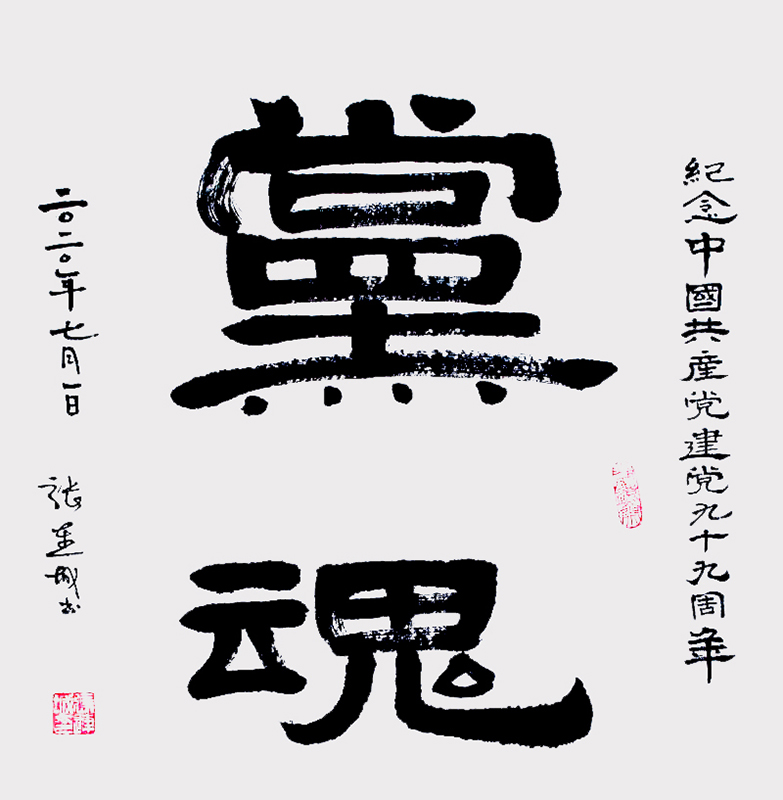 紀念中國共産党建党九十九周年
黨
魂
二〇二〇年七月一日
張連城书